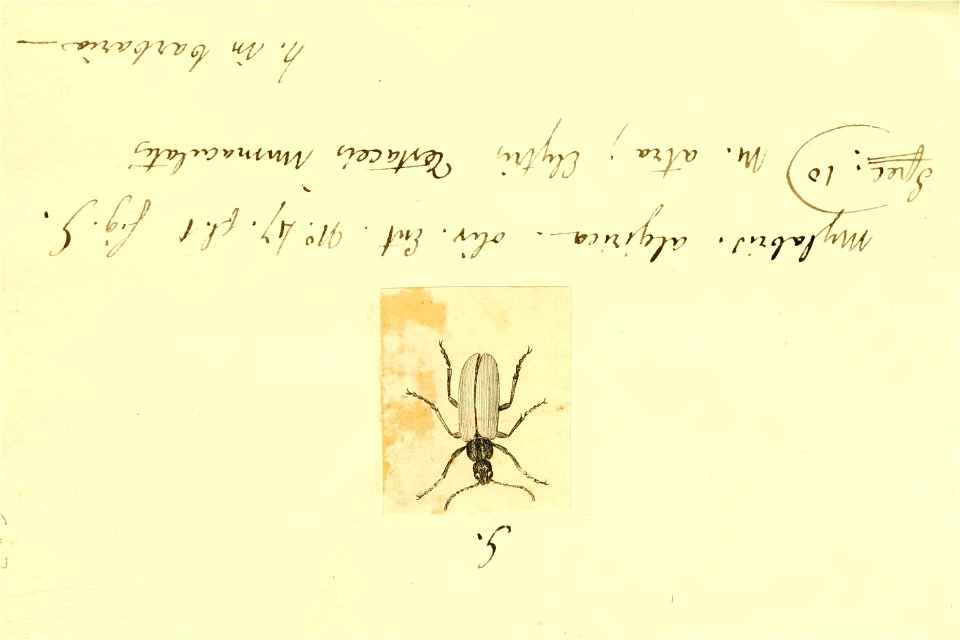 5.
Mylabris. algirica. oliv. Ent. N°. 47. pl. 1 fig. 5.
Spec: 10) M. atra; Elytris testaceis immaculatis
h. in barbaria